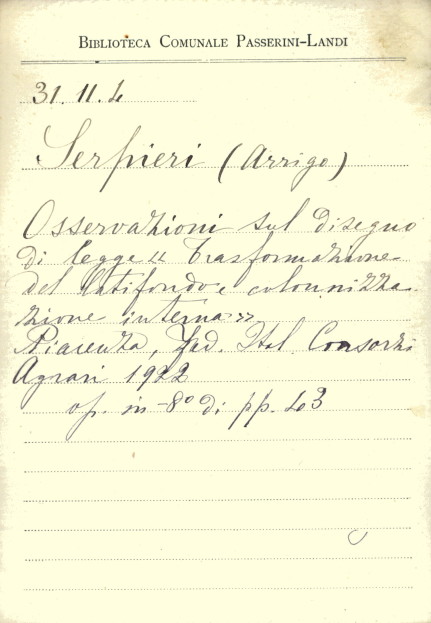 BIBLIOTECA COMUNALE PASSERINI-LANDI
31.11.4
Serpieri (Arrigo)
Osservazioni sul disegno
di legge « Trasformazione
del latifondo e colonnizza-
zione interna »
Piacenza, Fed. Ital. Consorzi
Agrari 1922
op. in -8° di pp. 403